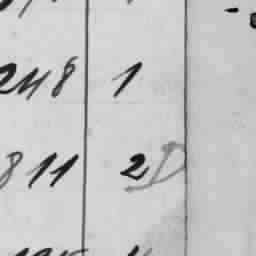 248 1
811 2 D